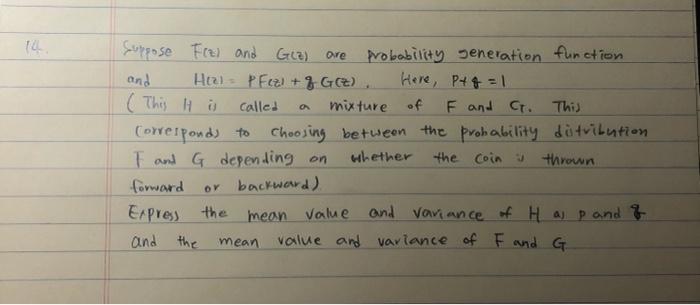 14. Suppose F(z) and G(z) are probability generation function
and H(z) = pF(z) + qG(z). Here, p+q=1
( This H is called a mixture of F and G. This
corresponds to choosing between the probability distribution
F and G depending on whether the coin is thrown
forward or backward)
Express the mean value and variance of H as p and q
and the mean value and variance of F and G